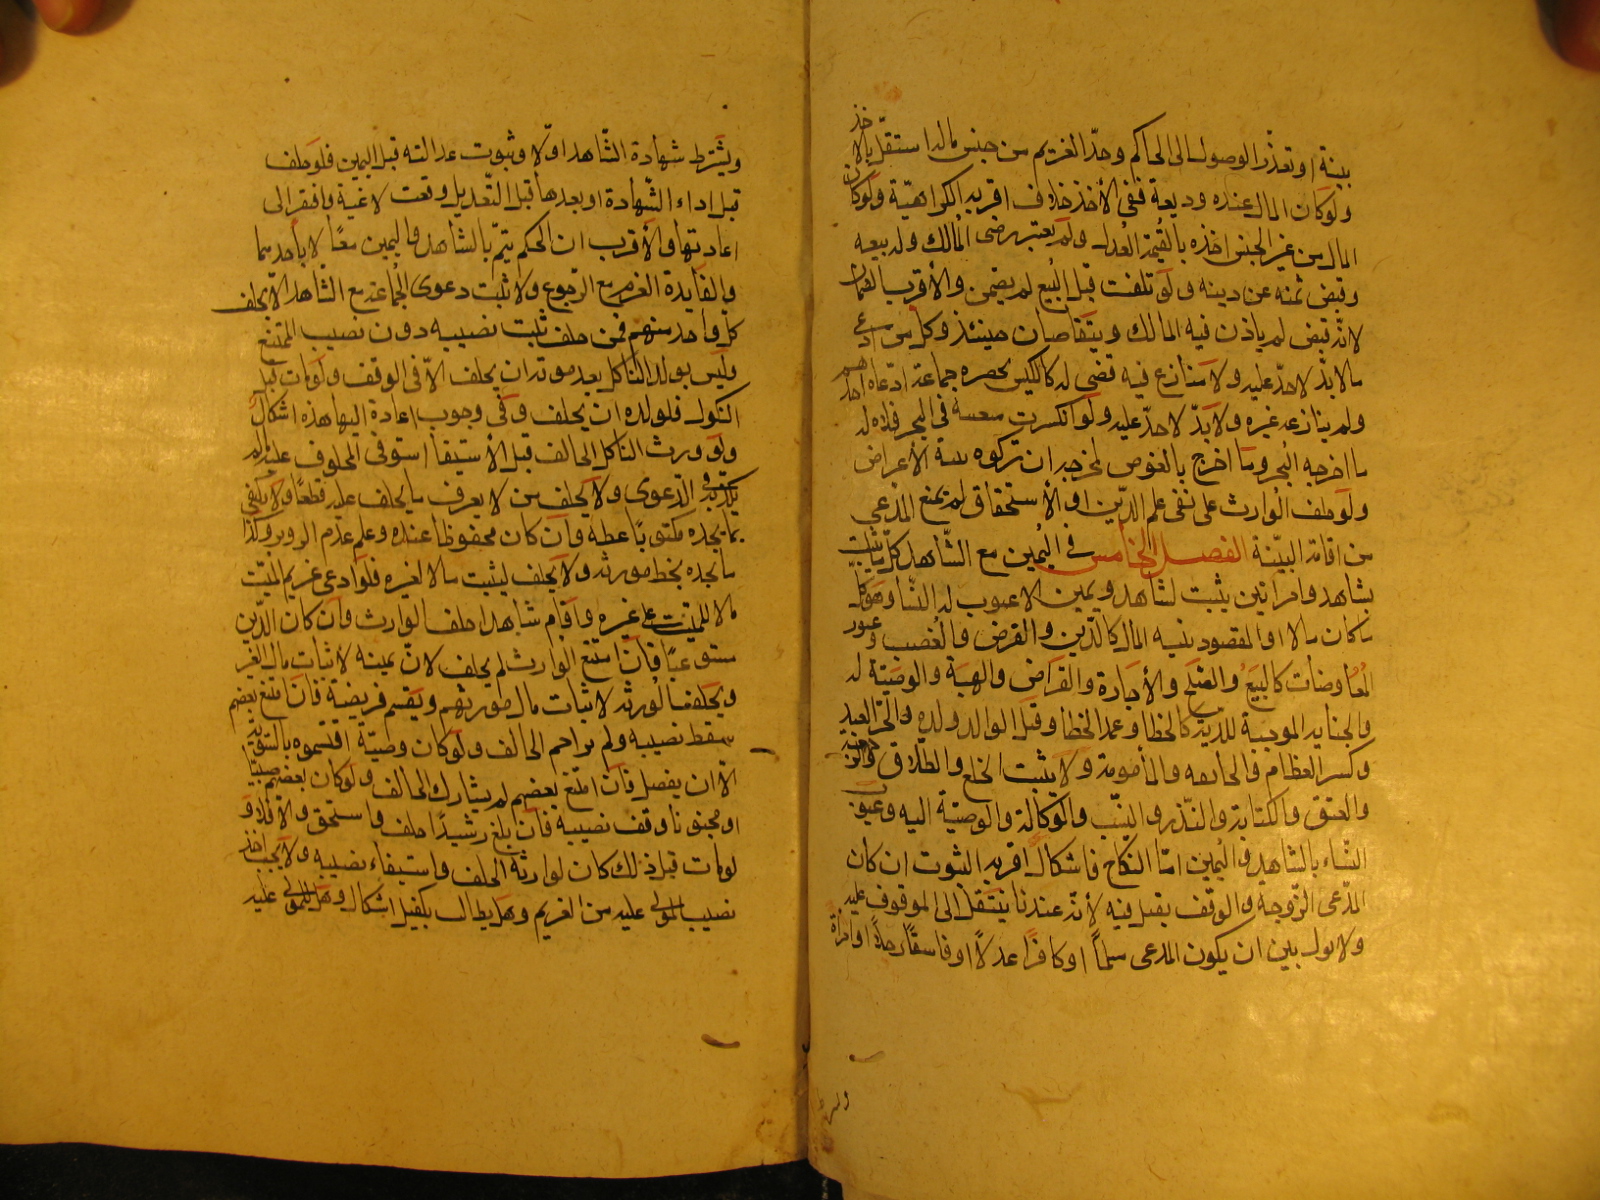 بينة او تعذر الوصول الى الحاكم و وجد الغريم من جنس ماله استقل بالاخذ
ولو كان المال عنده وديعة ففى الأخذ خلاف اقربه الكراهيّة ولو كان
المال من غير الجنس اخذه بالقيمة العدل ولم يعتبر رضى المالك وله بيعه
وقبض ثمنه عن دينه ولو تلفت قبل البيع لم يضمن والأقرب الضمان
لانّه قبض لم ياذن فيه المالك ويتقاصان حينئذ وكل من ادعى
مالا يد لاحد عليه ولا منازع فيه قضى له كالكيس بحضرة جماعة ادّعاه احدهم
ولم ينازعه غيره ولا يدّ لاحدّ عليه ولو انكسرت سفينة فى البحر فلاهله
ما اخرجه البحر وما اخرج بالغوص لمخرجه ان تركوه بنية الأعراض
ولو حلف الوارث على نفى علم الدّين او الأستحقاق لم يمنع المدعى
من اقامة البيّنة الفصل الخامس فى اليمين مع الشّاهد كل ما يثبت
بشاهد وامراتين يثبت لشاهد ويمين الا عيوب النّسا وهو كل
ما كان مالا او المقصود منه المال كالدّين والقرض والغصب وعقود
المعاوضات كالبيع والصّلح والأجارة والقراض والهبة والوصيّة له
والجناية الموجبة للدية كالخطا وعمد الخطا وقتل الوالد ولده والحرّ العبد
وكسر العظام والجايفه والمأمومة ولا يثبت الخلع والطّلاق والرجعة
والعتق والكتابة والنّذر والنّسب والوكالة والوصيّة اليه وعيوب
النّساء بالشاهد واليمين امّا النكاح فاشكال اقربه الثبوت ان كان
المدّعى الزّوجة والوقف يقبل فيه لأنّه عندنا ينتقل الى الموقوف عليه
ولا فرق بين ان يكون المدعى مسلماً او كافرًا عدلاً او فاسقًا رجلاً او امرأة
ويشترط شهادة الشّاهد اوّلا وثبوت عدالته قبل اليمين فلو حلف
قبل اداء الشّهادة او بعدها قبل التّعديل وقعت لاغية وافتقر الى
اعادتها والأقرب ان الحكم يتمّ بالشاهد واليمين معًا لا باحدهما
والفايدة الغرم مع الرّجوع ولا تثبت دعوى الجماعة مع الشّاهد الاّ بحلف
كل واحد منهم فمن حلف ثبت نصيبه دون نصيب الممتنع
وليس لولد الناكل بعد موته ان يحلف الاّ فى الوقف ولو مات قبل
النكول فلولده ان يحلف وفى وجوب اعادة اليها هذه اشكال
ولو ورث الناكل الحالف قبل الأستيفا استوفى المحلوف عليه لم
يكذبه فى الدّعوى ولا يحلف من لا يعرف ما يحلف عليه قطعًا ولا يكفى
بما يجده مكتوبًا بخطه وان كان محفوظا عنده وعلم عدم التزوير وكذا
ما يجده بخط مورثه ولا يحلف ليثبت مالا لغيره فلو ادعى غريم الميّت
مالا للميّت على غيره واقام شاهدا حلف الوارث وان كان الدّين
مستوعبًا فان امتنع الوارث لم يحلف لانّ يمينه لاثبات مال الغير
ويحلف الورثة لاثبات مال مورثهم ويقسم فريضة فان امتنع بعضهم
سقط نصيبه ولم يزاحم الحالف ولو كان وصيّة اقتسموه بالسّوية
الاّ ان يفصل فان امتنع بعضهم لم يشارك الحالف ولو كان بعضهم صبيّا
او مجنونا وقف نصيبه فان بلغ رشيدًا حلف واستحق والا فلا ولو
لو مات قبل ذلك كان لوارثه الحلف واستيفاء نصيبه ولا يجب اخذ
نصيب المولى عليه من الغريم وهل يطالب بكفيل اشكال وهل للمولى عليه